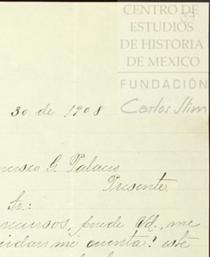 CENTRO DE
ESTUDIOS
DE HISTORIA
DE MEXICO
FUNDACIÓN
Carlos Slim
30 de 1908
ncisco G. Palacio
Presente
Sr.:
cursos, puede Ud. me
me cuenta: este